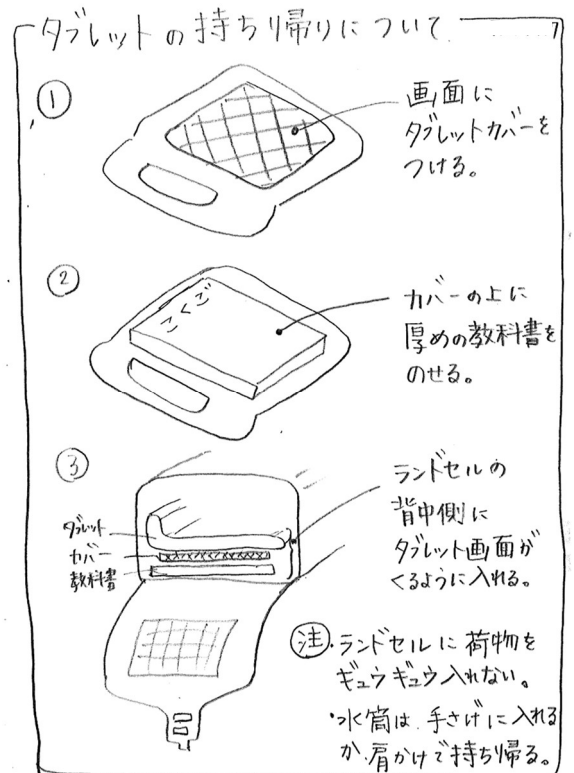 タブレットの持ち帰りについて
①
画面に
タブレットカバーを
つける。
②
こくご
カバーの上に
厚めの教科書を
のせる。
③
タブレット
カバー
教科書
ランドセルの
背中側に
タブレット画面が
くるように入れる。
注・ランドセルに荷物を
ギュウギュウ入れない。
・水筒は、手さげに入れる
か、肩かけで持ち帰る。